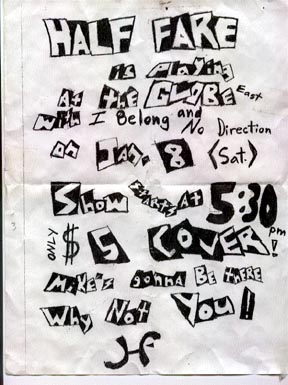 HALF FAKE
is Playing
At the GLOBE East
with I Belong and
No Direction
on Jan. 8 (Sat.)
Show starts At 5:30 pm
ONLY $5 COVER!
Mike's gonna Be there
Why Not You!
HF